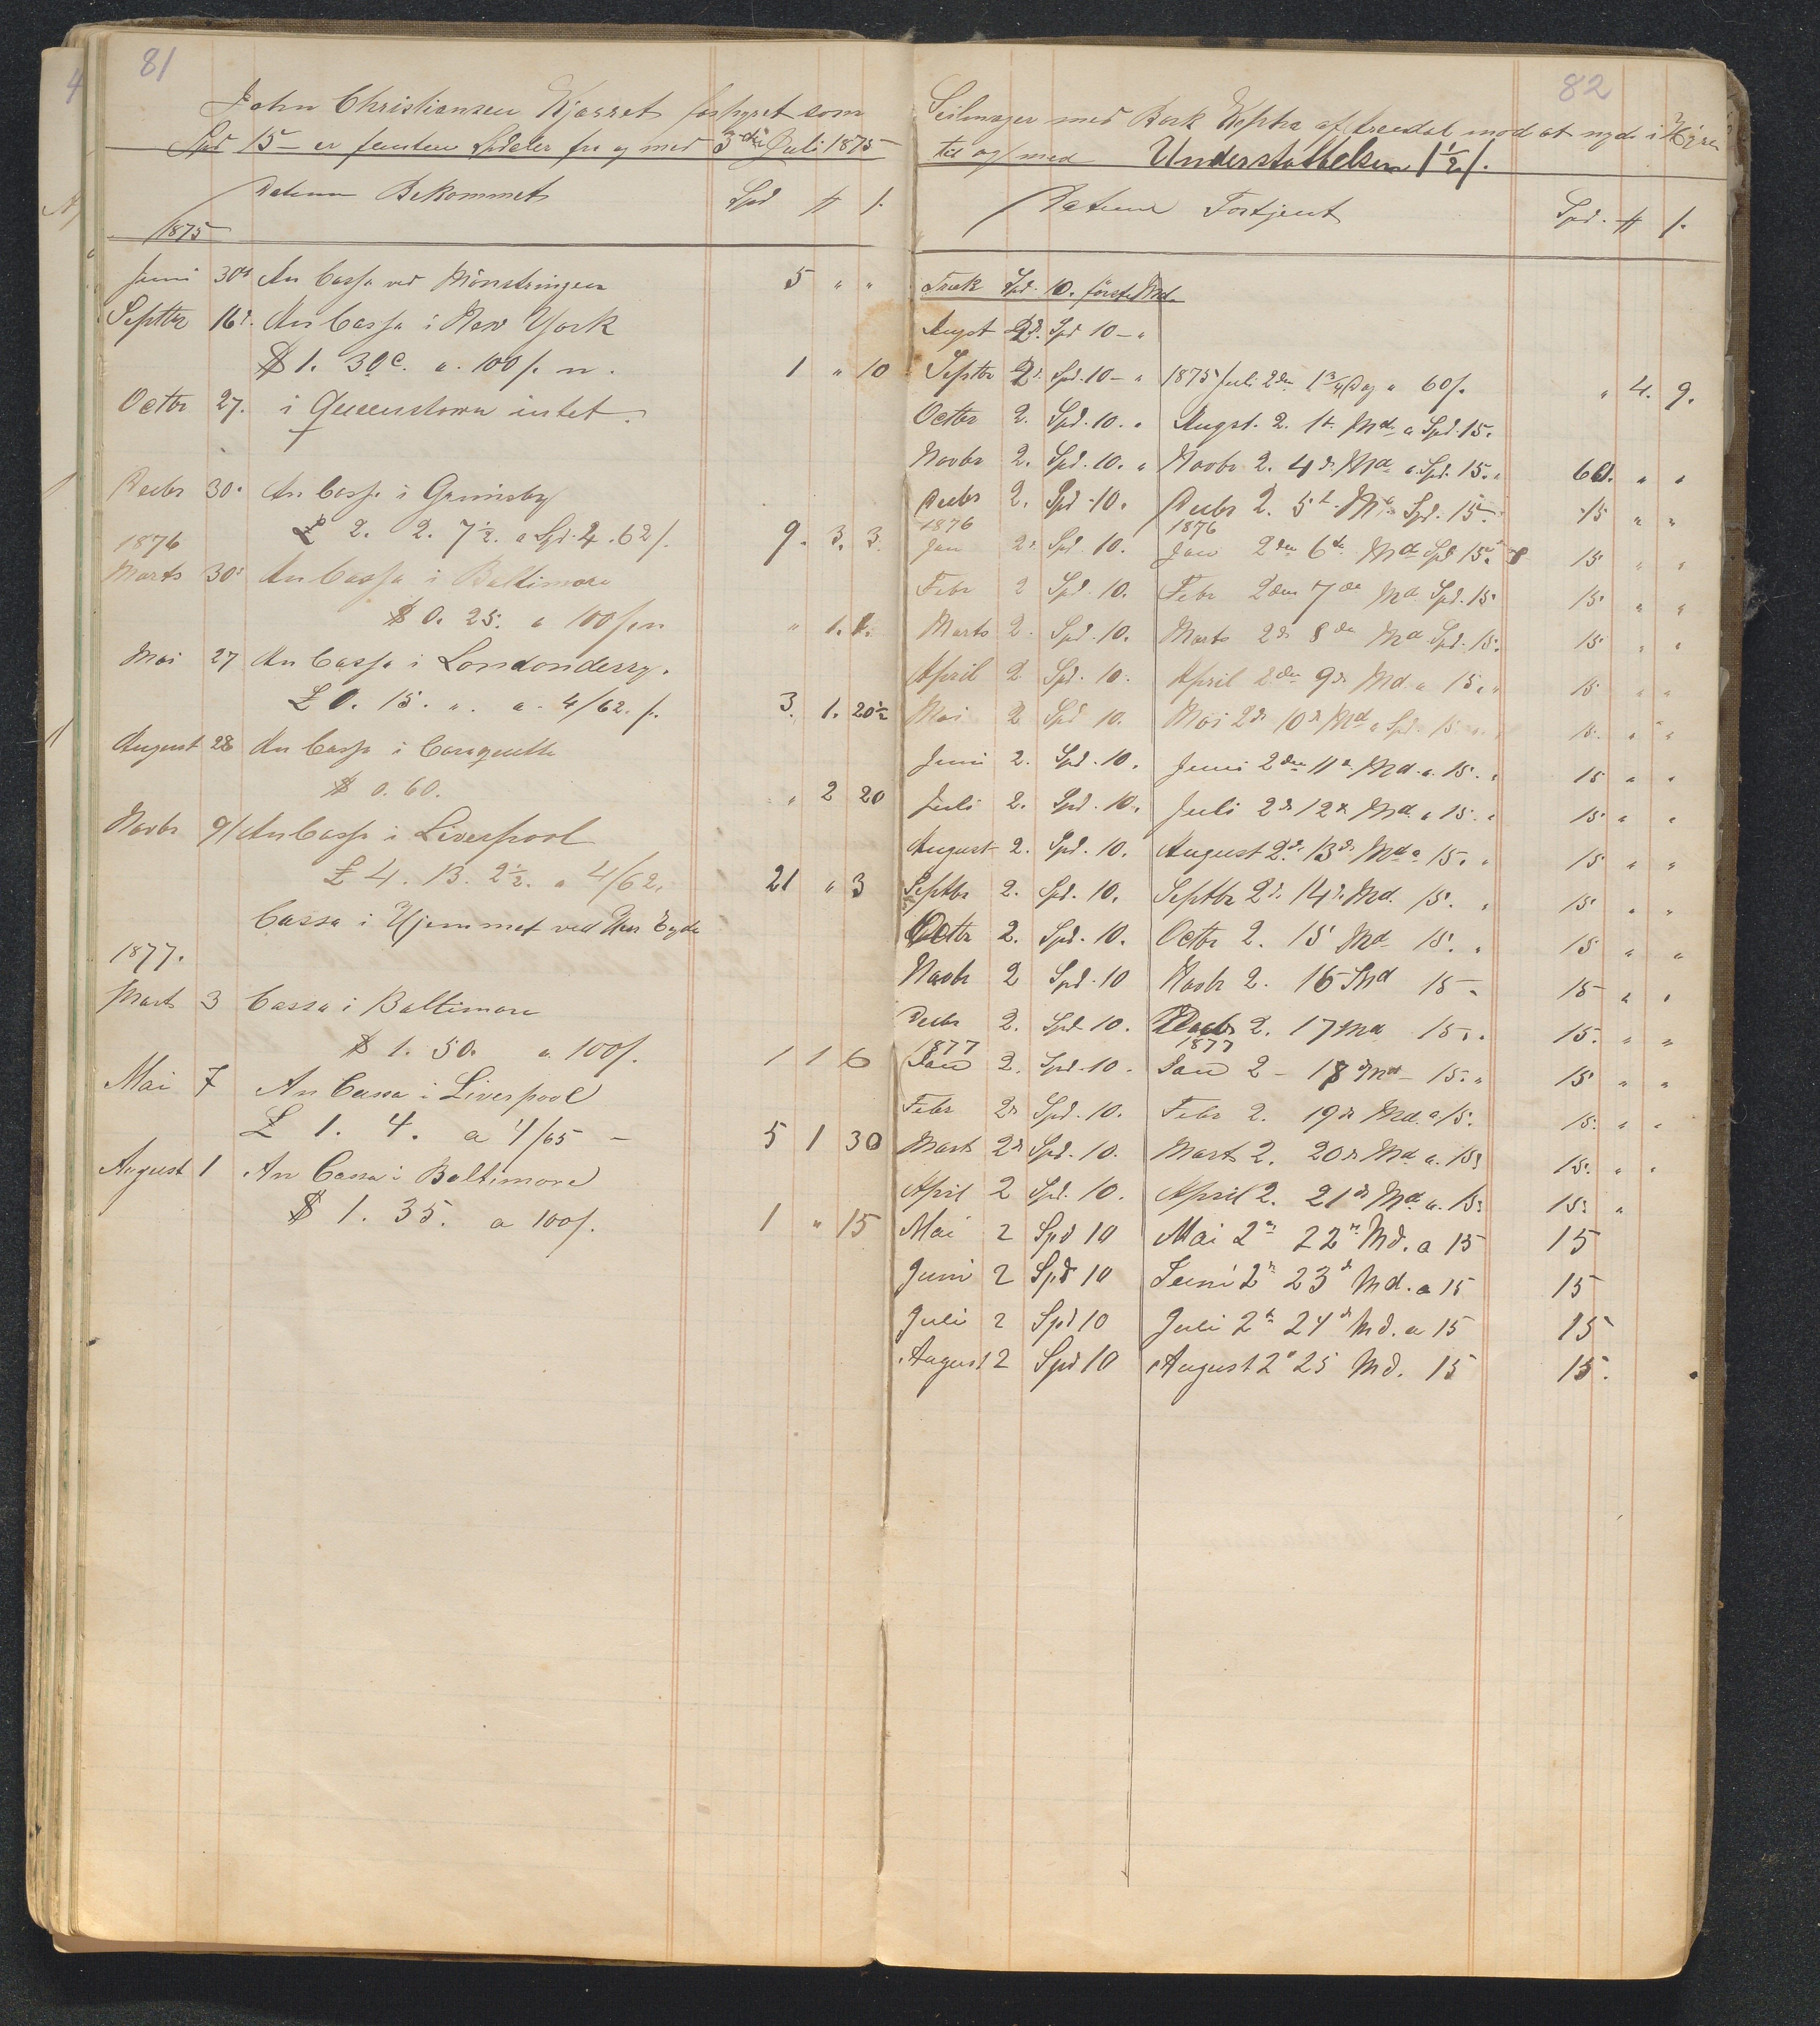 81
John Christiansen Kjorret forhyret som
Spd 15- er femten Spdaler fra og med 3die Juli 1875
Datum Bekommet Spd # /.
1875
Juni 30d An Cassa ved Mönstringen 5 " "
Septbr 16d. An Cassa i New York
$ 1. 30c. a. 100/. n. 1 " 10
Octbr 27. i Queenstown intet.
Decbr 30. An Cassa i Grimsby
£ 2. 2. 7½. a Spd. 4. 62/. 9. 3. 3.
1876
Marts 30d An Cassa i Baltimore
$ 0. 25. a 100/. n " 1. 1.
Mai 27 An Cassa i Londonderry.
£ 0. 15. ". a. 4/62. /. 3. 1. 20½
August 28 An Cassa i Caraquette
$ 0. 60. " 2 20
Novbr 9/ An Cassa i Liverpool
£ 4. 13. 2½. a 4/62. 21 " 3
Cassa i Hjemmet ved Herr Eyde
1877.
Mart 3 Cassa i Baltimore
$ 1. 50. a. 100/. 1 1 6
Mai 7 An Cassa i Liverpool
£ 1. 4. a 4/65 - 5 1 30
August 1 An Cassa i Baltimore
$ 1. 35. a 100/. 1 " 15
82
Seilmager med Bark Hephta af Arendal mod at nyde i Hyre
til og med Understøttelsen 1½/.
Datum Fortjent Spd. # /.
Træk Spd. 10. første Md.
Augst 2d. Spd 10 - "
Septbr 2d. Spd. 10 - " 1875 Juli 2den 1¾ Dag a 60/. " 4. 9.
Octbr 2. Spd. 10. " Augst. 2. 1t. Md. a Spd. 15.
Novbr 2. Spd. 10. " Novbr 2. 4d. Md a. Spd. 15. " 60. " "
Decbr 2. Spd. 10. Decbr 2. 5t. Md. Spd. 15. 15 " "
1876 1876
Jan 2d. Spd. 10. Jan 2den 6te Md Spd 15. 15 " "
Febr 2 Spd. 10. Febr 2den 7de Md. Spd. 15. 15. " "
Marts 2. Spd. 10. Marts 2d 8de Md. Spd. 15. 15 " "
April 2. Spd. 10. April 2den 9d Md. a 15. " 15 " "
Mai 2 Spd 10. Mai 2d 10d Md a Spd. 15 15. " "
Juni 2. Spd. 10. Juni 2den 11d. Md. a. 15. " 15 " "
Juli 2. Spd. 10. Juli 2d 12d Md. a 15. " 15 " "
August 2. Spd. 10. August 2d. 13d Md a 15. " 15 " "
Septbr 2. Spd. 10. Septbr 2d. 14d. Md. 15. " 15. " "
Octbr 2. Spd. 10. Octbr 2. 15 Md 15. " 15 " "
Novbr 2 Spd. 10 Novbr 2. 16 Md 15 - 15 " "
Decbr 2. Spd. 10. Decbr 2. 17 Md 15. " 15. " "
1877 1877
Jan 2. Spd. 10. Jan 2 - 18d Md - 15. " 15 " "
Febr 2d Spd. 10. Febr 2. 19d Md. a 15. 15. " "
Mart 2d Spd. 10. Mart 2. 20d Md a. 15. 15. " "
April 2 Spd. 10. April 2. 21d Md a. 15. 15. "
Mai 2 Spd 10 Mai 2n 22n Md. a 15 15
Juni 2 Spd 10 Juni 2d 23d Md. a 15 15
Juli 2 Spd 10 Juli 2d 24d Md. a 15 15
August 2 Spd 10 August 2d 25 Md. 15 15.